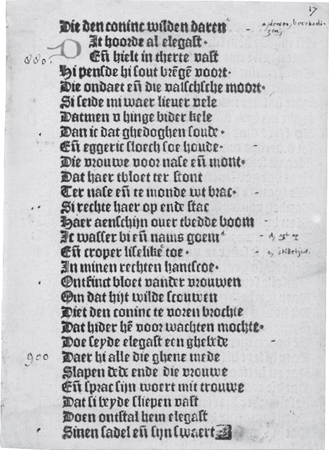 Die den coninc wilden daren
Dit hoorde al elegast.
880. En̄ hielt in therte vast
Hi pensde hi sout brēgē voort.
Die ondaet en̄ die valschsche moort.
Si seide mi waer lieuer vele
Datmen v hinge bider kele
Dan ic dat ghedoghen soude.
En̄ eggeric sloech soe houde.
Die vrouwe voor nase en̄ mont.
Dat haer tbloet ter stont
Ter nase en̄ te monde wt brac.
Si rechte haer op ende stac
Haer aenschijn ouer tbedde boom
Ic wasser bi en̄ nams goem
En̄ croper liselike toe.
In minen rechten hantscoe.
Ontfinct bloet vander vrouwen
Om dat hijt wilde scouwen
Diet den coninc te voren brochte
Dat hider hē voor wachten mochte.
Doe seyde elegast een ghebede
900 Daer hi alle die ghene mede
Slapen dede ende die vrouwe
En̄ sprac sijn woert mit trouwe
Dat si beyde sliepen vast
Doen ontstal hem elegast
Sinen sadel en̄ sijn swaert